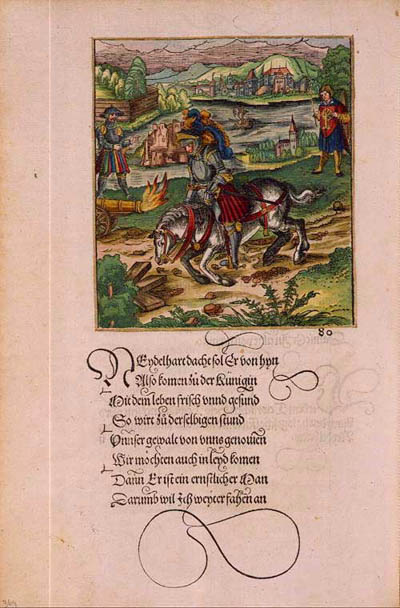 80
NEydelhart dacht sol Er von hyn
Also komen zů der Kunigin
Mit dem leben frisch vnnd gesund
So wirt zů derselbigen stund
Vnnser gewalt von vnns genomen
Wir möchten auch in leyd komen
Dann Er ist ein ernstlicher Man
Darumb wil Ich weyter fahen an